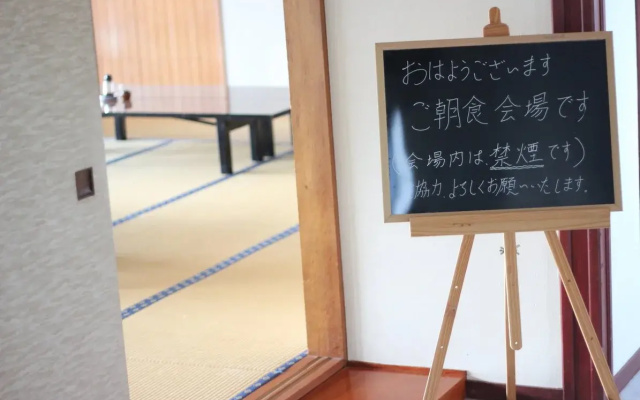 おはようございます
ご朝食会場です
(会場内は、禁煙です)
協力、よろしくお願いいたします。